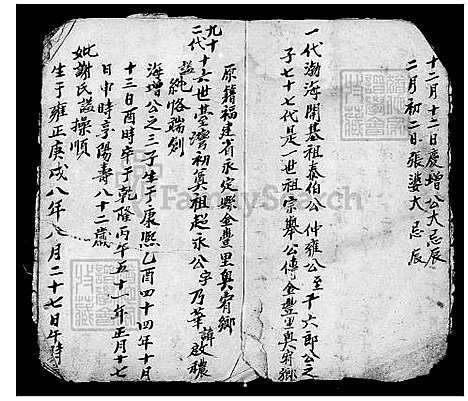 十二月十二日慶增公大忌辰
二月初二日張婆太忌辰
一代渤海開基祖泰伯公仲雍公至千六郎公之
子七十七代是一世祖宗舉公傳金豐里奧窅鄉
原籍福建省永定縣金豐里奧窅鄉
九十二代十六世臺灣初奠祖起永公字乃華諱啟穠
謚純恪瑞釗
海增公之三子生于康熙乙酉四十四年十月
十三日酉時卒于乾隆丙午五十一年正月十七
日申時享陽壽八十二歲
妣謝氏謚操順
生于雍正庚戌八年八月二十七日午時
FamilySearch